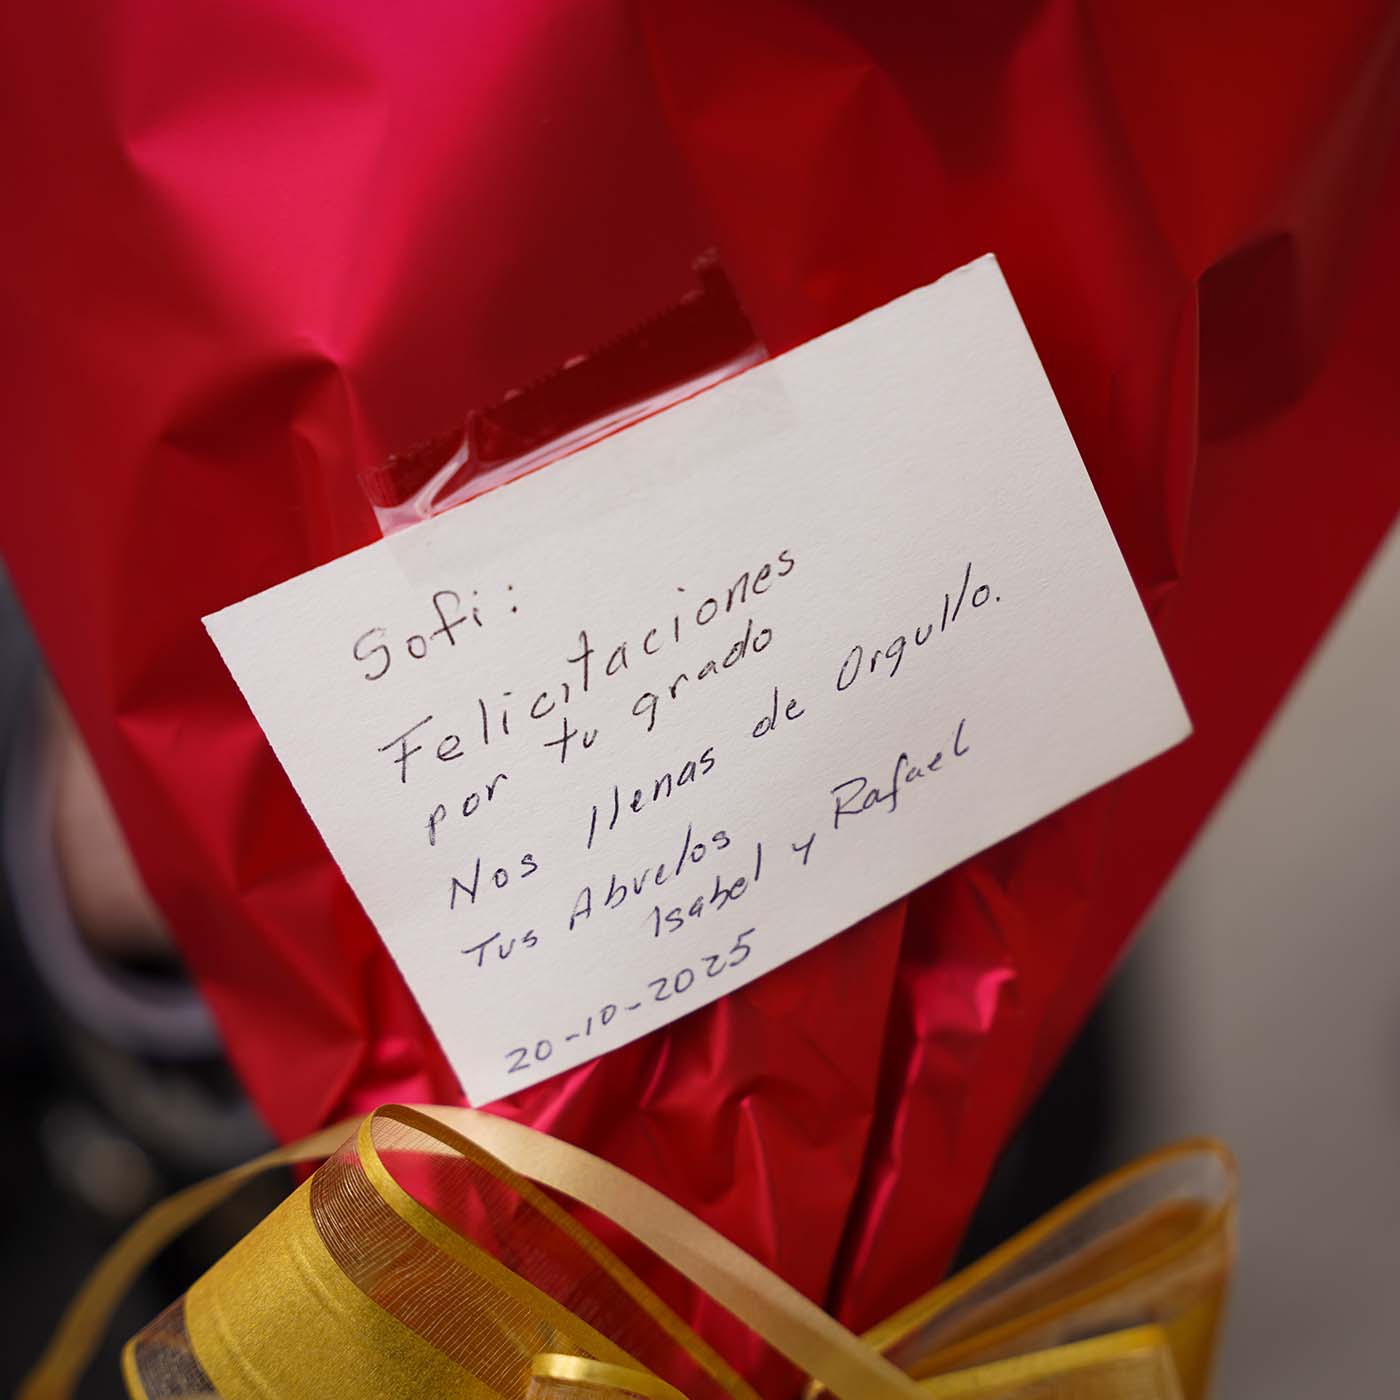 Sofi:
Felicitaciones
por tu grado
Nos llenas de Orgullo.
Tus Abuelos
Isabel y Rafael
20-10-2025